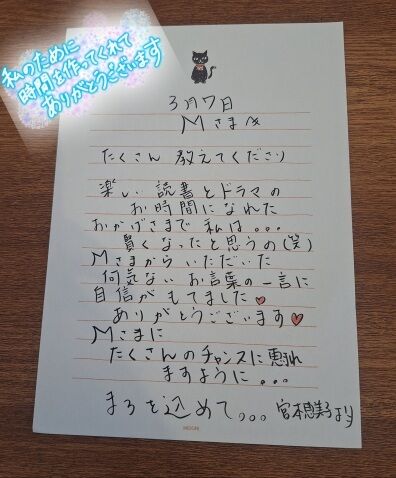 私のために
時間を作ってくれて
ありがとうございます
3月7日
Mさまへ
たくさん 教えてくださり
楽しい 読書とドラマの
お時間になれた
おかげさまで 私は。。。
賢くなったと思うの(笑)
Mさまから いただいた
何気ない お言葉の一言に
自信が もてました
ありがとうございます
Mさまに
たくさんのチャンスに恵まれ
ますように。。。
まろを込めて。。。宮本恵美子より